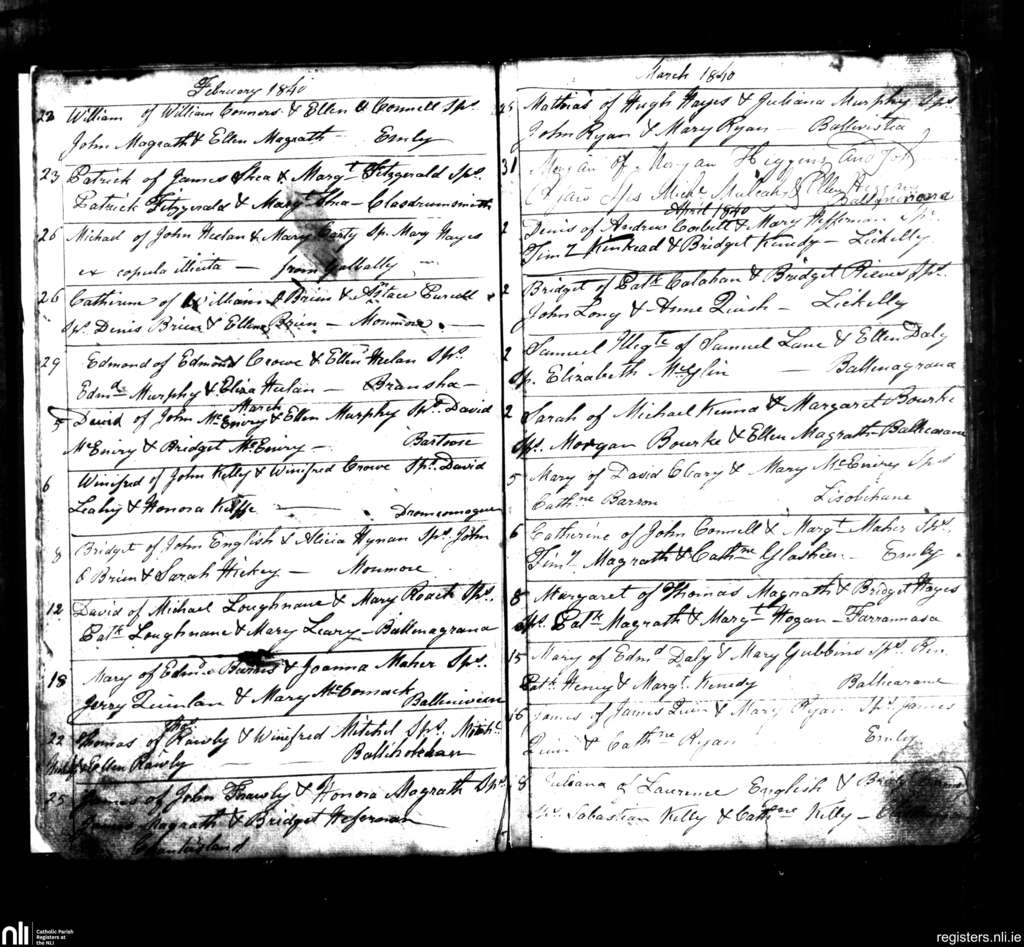 February 1840
23 William of William Connors & Ellen O Connell Sps.
John Magrath & Ellen Magrath — Emly
23 Patrick of James Shea & Margt Fitzgerald Sps.
Patrick Fitzgerald & Margt Shea — Glasdrumsmith
26 Michael of John Heelan & Mary Carty Sp. Mary Hayes
ex copula illicita — from Galbally
26 Catherine of William O Brien & Purcell
Sps. Denis Brien & Ellen Brien — Monmore —
29 Edmond of Edmond Crowe & Ellen Heelan Sps.
Edmd. Murphy & Eliza Heelan — Bransha —
March
5 David of John McEniry & Ellen Murphy Sps. David
McEniry & Bridget McEniry — Bartoose
6 Winefred of John Kelly & Winifred Crowe Sps. David
Leahy & Honora Keffe — Dromcomogue
8 Bridget of John English & Alicia Hynan Sps. John
O Brien & Sarah Hickey — Monmore
12 David of Michael Loughnane & Mary Roach Sps.
Patk Loughnane & Mary Leary — Ballenagrana
18 Mary of Edmd. Burns & Joanna Maher Sps.
Jerry Quinlan & Mary McCormack Balleniveen
22 Thomas of Thos. Rawly & Winifred Mitchel Sps. Mitchl.
& Ellen Rawly — Ballihohedan
25 James of John Frawly & Honora Magrath Sps.
James Magrath & Bridget Heffernan
March 1840
25 Mathias of Hugh Hayes & Juliana Murphy Sps
John Ryan & Mary Ryan — Ballivistea
31 Morgan of Morgan Higgins and
Ryan Sps Michl & Ellen Higgins
April 1840
2 Denis of Andrew Corbett & Mary Heffernan Sps.
Timy Kinkead & Bridget Kenedy — Lickelly
2 Bridget of Patk Calahan & Bridget Rieves Sps.
John Long & Anne Quish — Lickelly
2 Samuel Illegte of Samuel Lane & Ellen Daly
Sp. Elizabeth McGlin — Ballenagrana
2 Sarah of Michael Kenna & Margaret Bourke
Sps. Morgan Bourke & Ellen Magrath — Ballicarane
5 Mary of David Cleary & Mary McEniry Sps
Cathne Barron — Lisobihane
6 Catherine of John Connell & Margt Maher Sps.
Timy. Magrath & Cathne Glasheen — Emly
8 Margaret of Thomas Magrath & Bridget Hayes
Sps. Patk Magrath & Margt Hogan — Farrannasa
15 Mary of Edmd Daly & Mary Gubbins Sps. Rev.
Patk Heney & Margt. Kenedy Ballicarane
16 James of James Quin & Mary Ryan Sps. James
Quin & Cathne Ryan Emly
18 Juliana of Laurence English & Bridget
Sps. Sabastian Kelly & Cathne Kelly —
nli Catholic Parish
Registers at
the NLI
registers.nli.ie